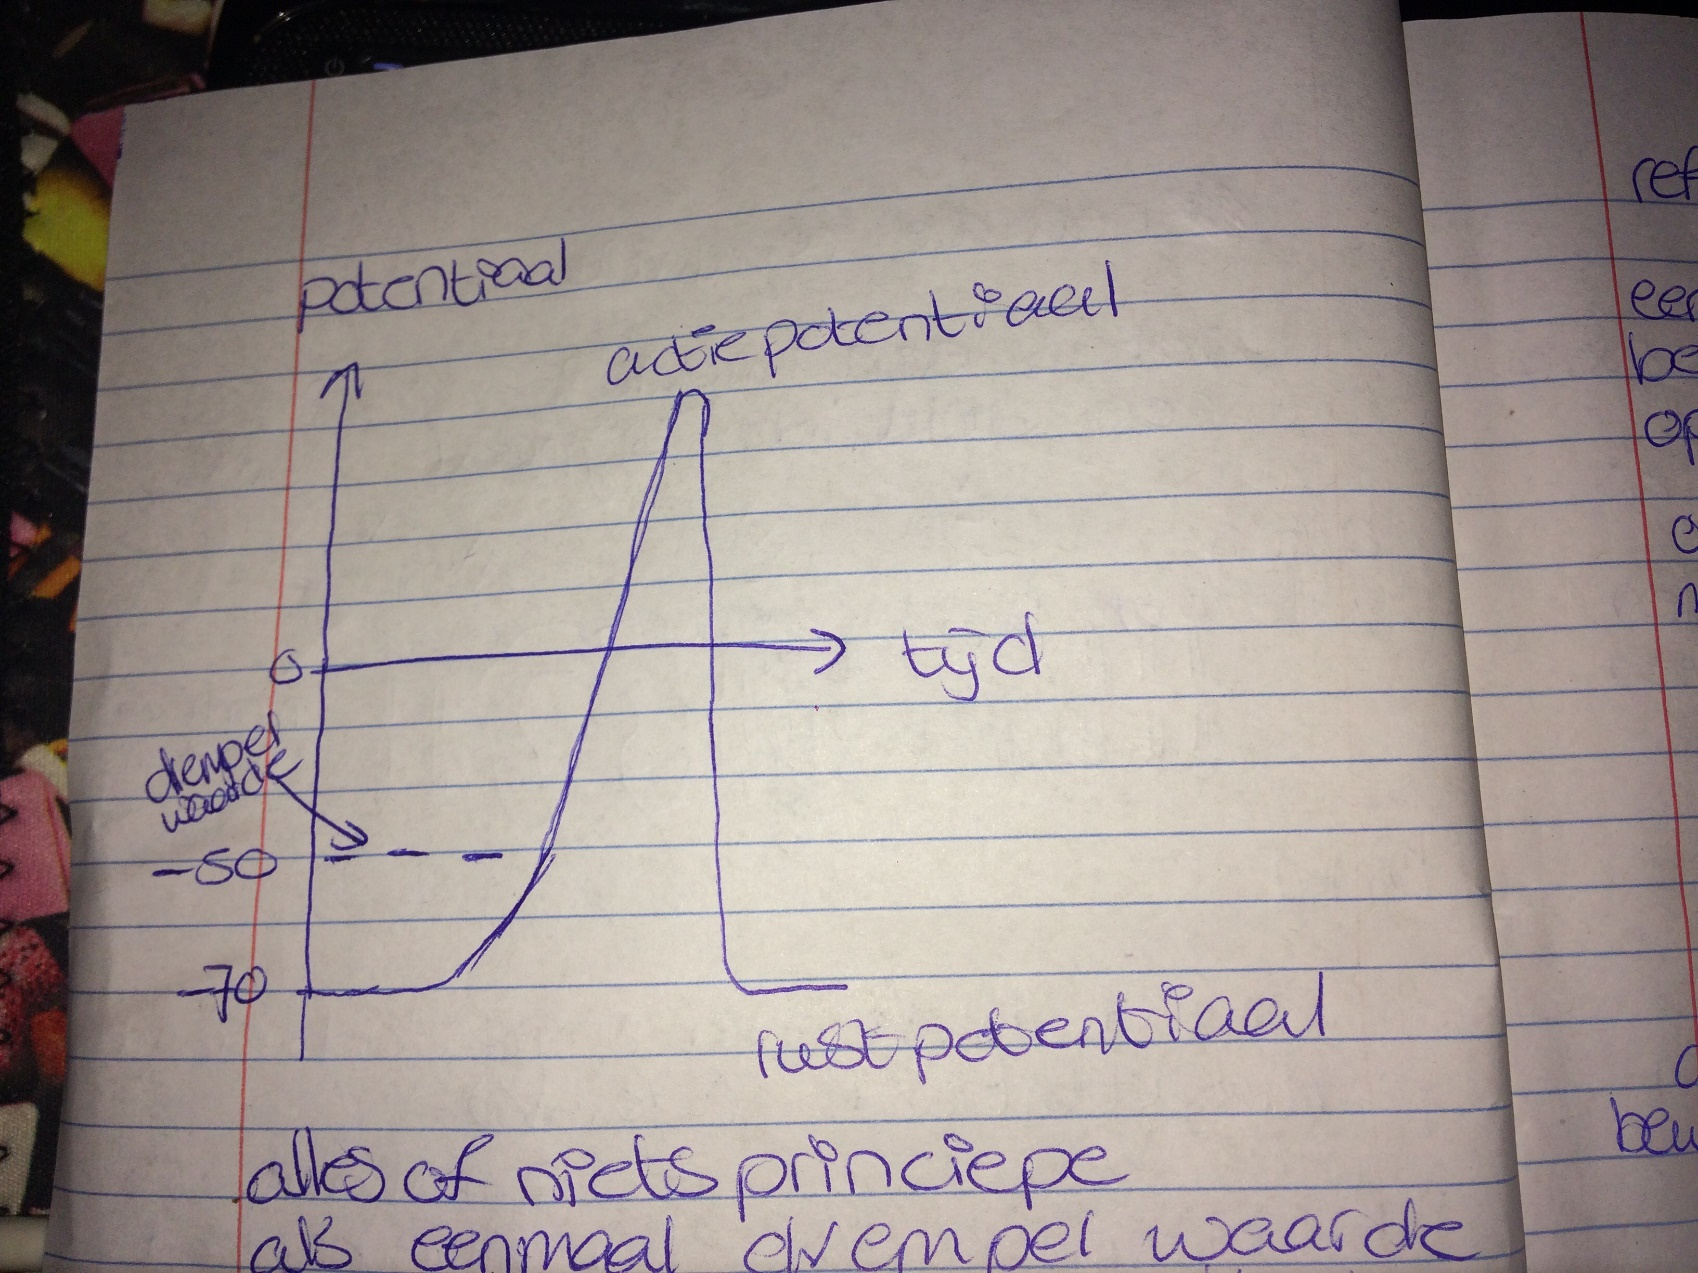 potentiaal
actiepotentiaal
0
tijd
drempel
waarde
-50
-70
rustpotentiaal
alles of niets princiepe
als eenmaal drempel waarde
ref
een
be
op